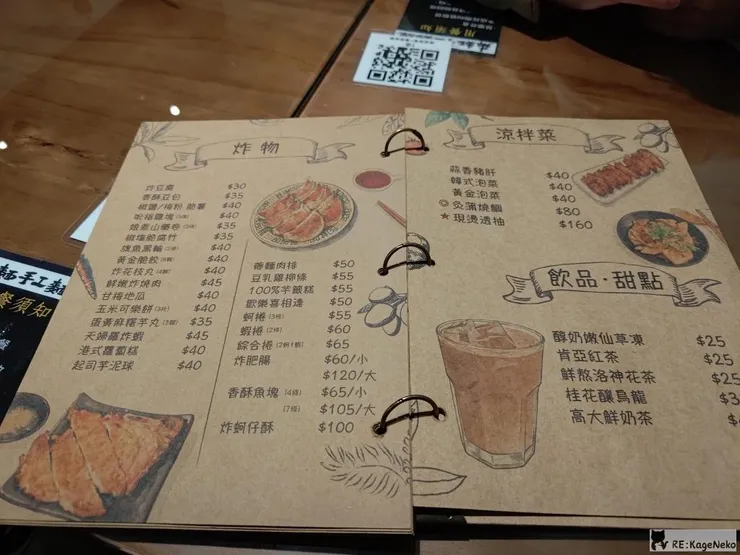 用餐須知
手工麵
須知
炸物
炸豆腐 $30
香酥豆包 $35
椒鹽/梅粉 脆薯 $40
哈福雞塊(5塊) $40
娘惹山藥卷(3條) $35
椒塩脆腐竹 $35
旗魚黑輪(2條) $40
黃金脆餃(6顆) $40
炸花枝丸(4顆) $40
鮮嫩炸燒肉 $45
甘梅地瓜 $40
玉米可樂餅(3片) $40
蛋黃麻糬芋丸(3顆) $35
天婦羅炸蝦 $45
港式蘿蔔糕 $40
起司芋泥球 $40
薔麵肉排 $50
豆乳雞柳條 $55
100%芋籤糕 $50
歡樂喜相逢 $50
蚵捲(3條) $55
蝦捲(2條) $60
綜合捲(2蚵1蝦) $65
炸肥腸 $60/小
$120/大
香酥魚塊(4條) $65/小
(7條) $105/大
炸蚵仔酥 $100
涼拌菜
蒜香豬肝 $40
韓式泡菜 $40
黃金泡菜 $40
◎灸蒲燒鯛 $80
★現燙透抽 $160
飲品·甜點
醇奶嫩仙草凍 $25
肯亞紅茶 $25
鮮熬洛神花茶 $25
桂花釀烏龍 $3
高大鮮奶茶
RE:KageNeko